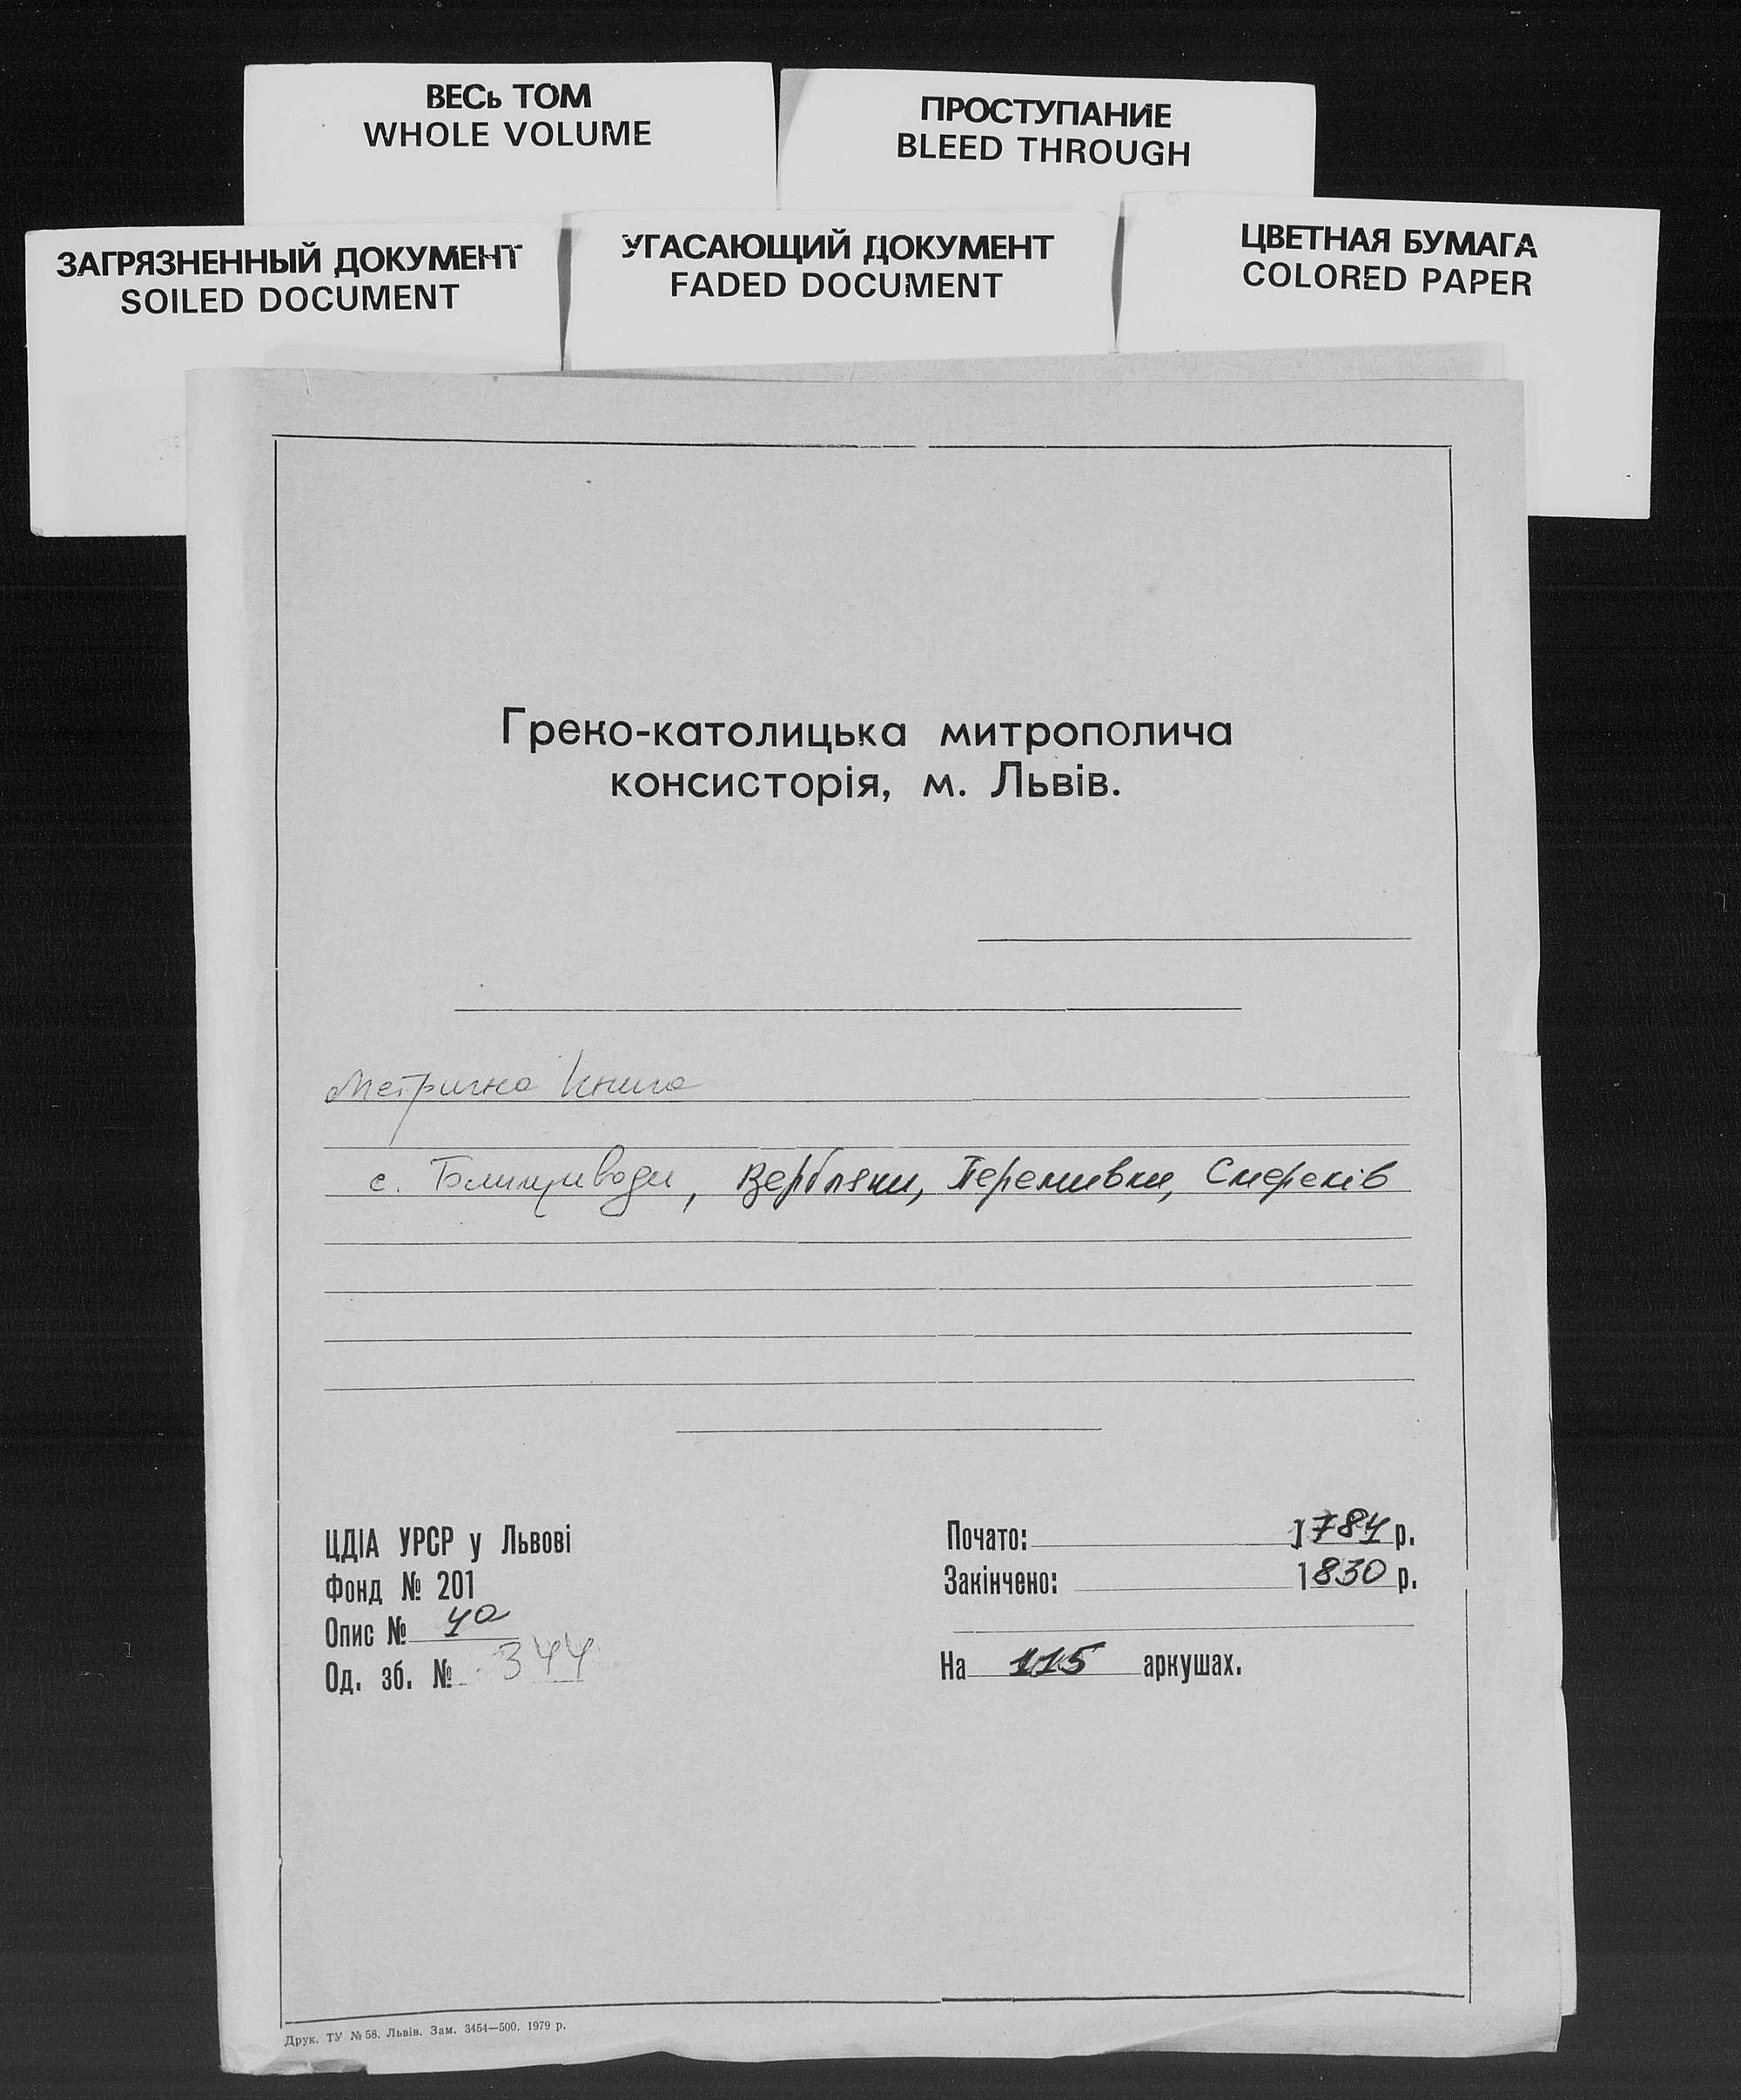 ВЕСЬ ТОМ
WHOLE VOLUME
ПРОСТУПАНИЕ
BLEED THROUGH
ЗАГРЯЗНЕННЫЙ ДОКУМЕНТ
SOILED DOCUMENT
УГАСАЮЩИЙ ДОКУМЕНТ
FADED DOCUMENT
ЦВЕТНАЯ БУМАГА
COLORED PAPER
Греко-католицька митрополича
консисторія, м. Львів.
Метрична книга
с. Блищиводи, Вербляни, Перемивки, Смереків
ЦДІА УРСР у Львові
Фонд № 201
Опис № 4а
Од. зб. № 344
Почато: 1784 р.
Закінчено: 1830 р.
На 115 аркушах.
Друк. ТУ № 58. Львів. Зам. 3454—500. 1979 р.